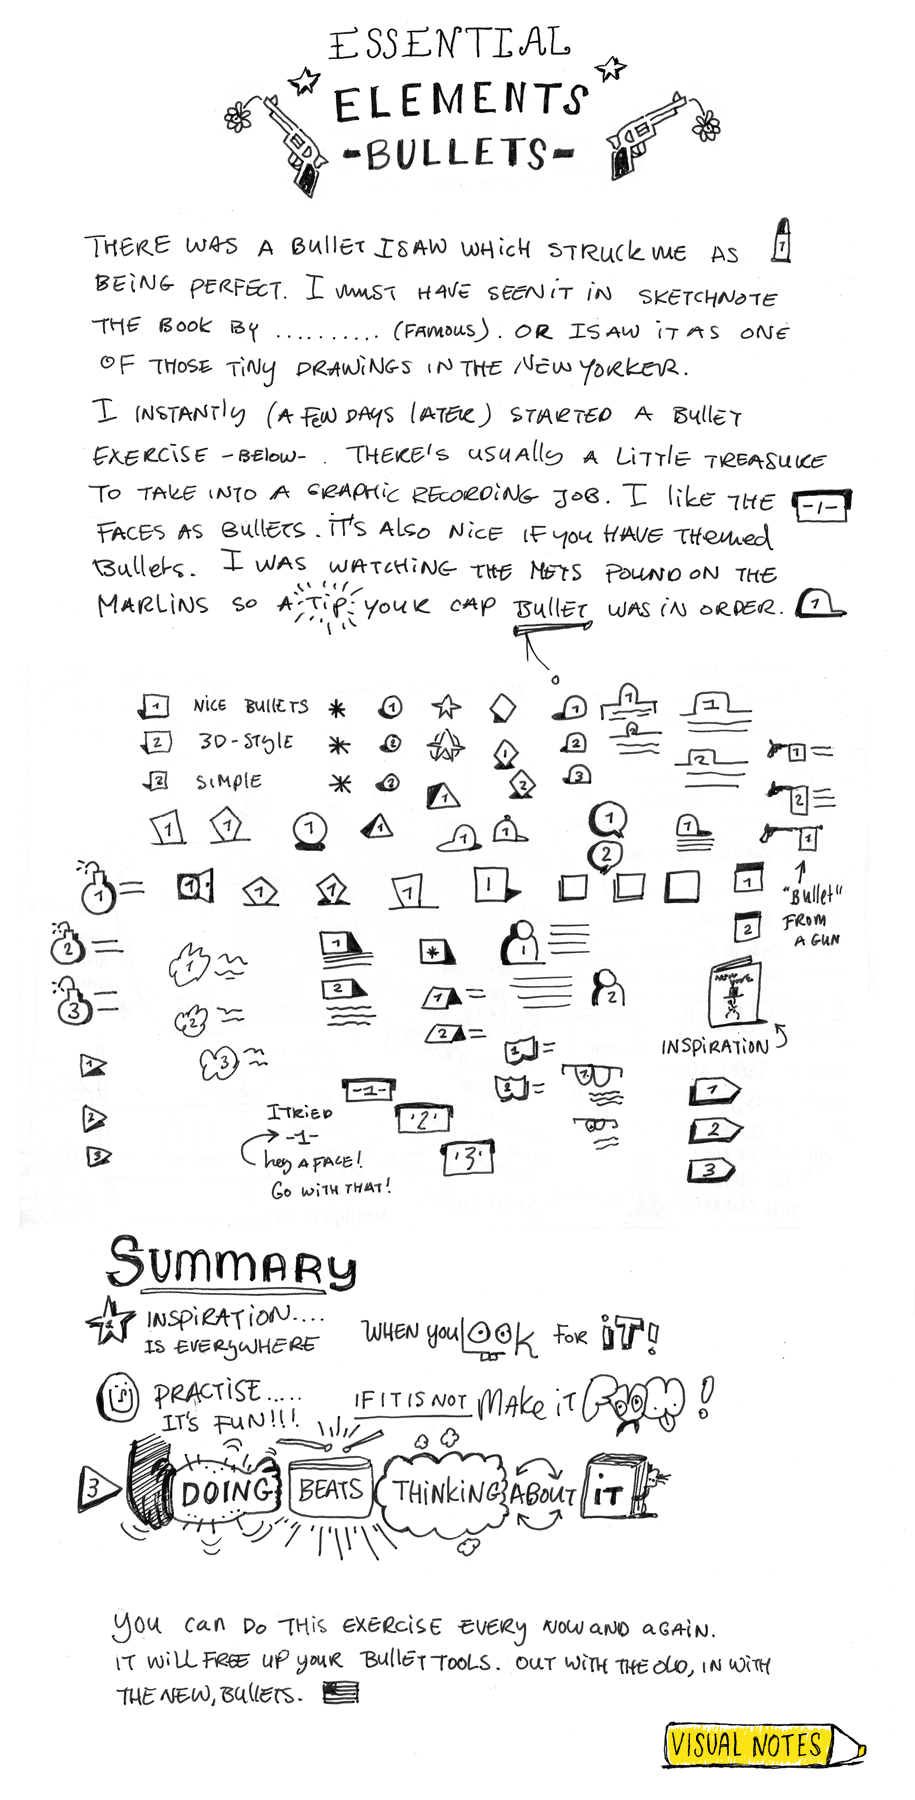 ESSENTIAL
ELEMENTS
-BULLETS-
THERE WAS A BULLET I SAW WHICH STRUCK ME AS
1
BEING PERFECT. I MUST HAVE SEEN IT IN SKETCHNOTE
THE BOOK BY .......... (FAMOUS). OR I SAW IT AS ONE
OF THOSE TINY DRAWINGS IN THE NEW YORKER.
I INSTANTLY (A FEW DAYS LATER) STARTED A BULLET
EXERCISE -BELOW- . THERE'S USUALLY A LITTLE TREASURE
TO TAKE INTO A GRAPHIC RECORDING JOB. I LIKE THE
-1-
FACES AS BULLETS. IT'S ALSO NICE IF YOU HAVE THEMED
BULLETS. I WAS WATCHING THE METS POUND ON THE
MARLINS SO A TIP YOUR CAP BULLET WAS IN ORDER.
1
1 NICE BULLETS * 1 1 1 1
2 3D-STYLE * 2 1 2 2 2 1
2 SIMPLE * 2 1 2 3 2
1 1 1 1 1 1 1 1 1
2
1 1 1 1 1 1 1
"BULLET"
FROM
A GUN
2 1 1 * 1 2
3 2 2 1 2 2
INSPIRATION
1 3 1
2 1
-1- 1
2 '2' 2
3 '3' 3
I TRIED
-1-
HEY A FACE!
GO WITH THAT!
SUMMARY
1 INSPIRATION.... WHEN YOU LOOK FOR IT!
IS EVERYWHERE
PRACTISE..... IF IT IS NOT MAKE IT FROM!
IT'S FUN!!!
3 DOING BEATS THINKING ABOUT IT
YOU CAN DO THIS EXERCISE EVERY NOW AND AGAIN.
IT WILL FREE UP YOUR BULLET TOOLS. OUT WITH THE OLD, IN WITH
THE NEW, BULLETS.
VISUAL NOTES